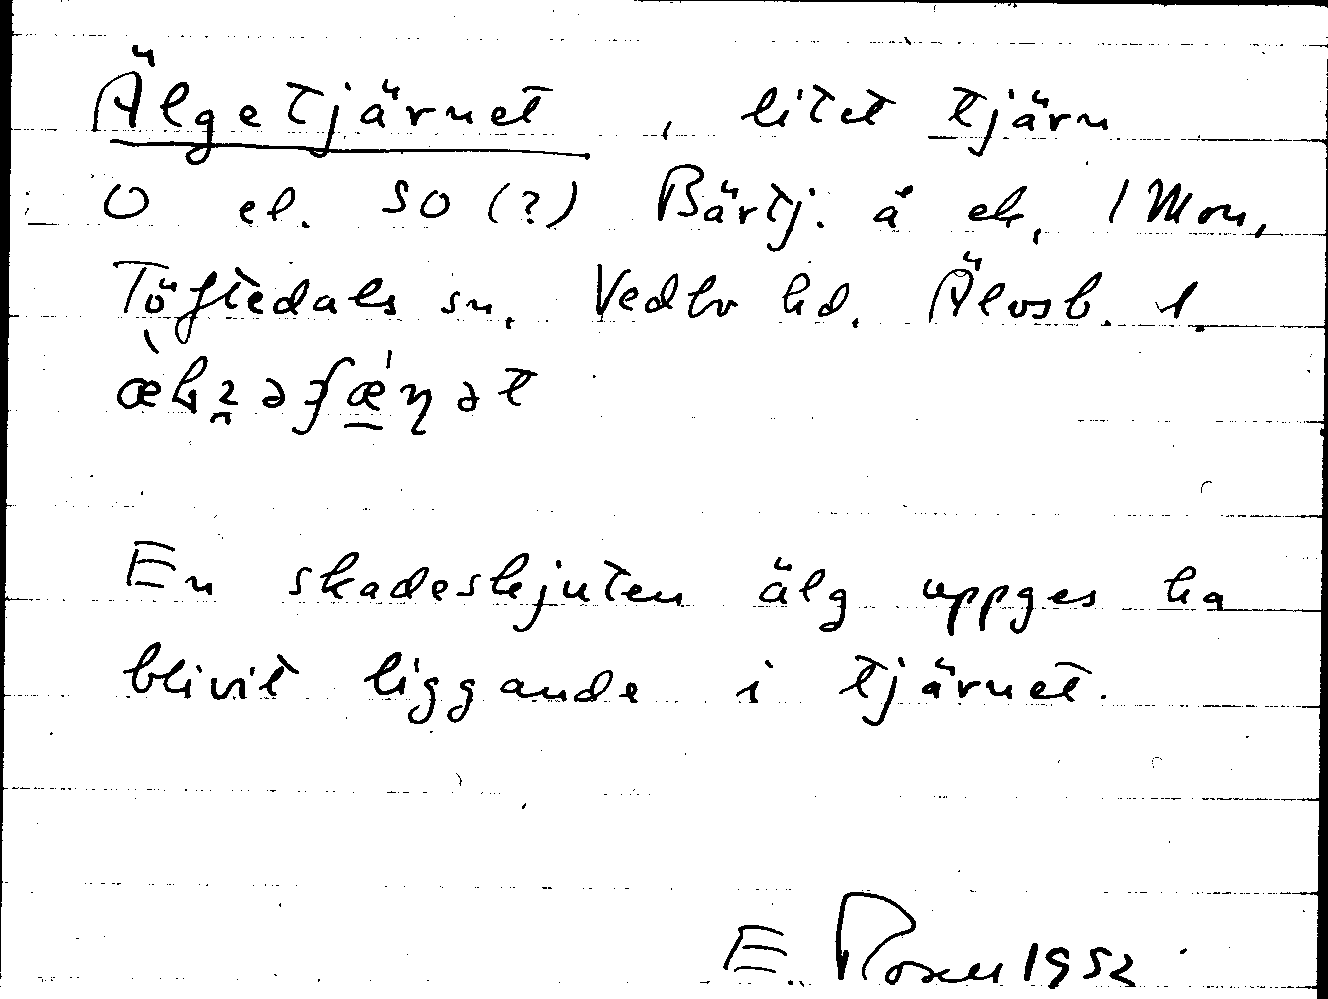 Älgetjärnet, litet tjärn
O el. SO (?) Bärtj. å ek, 1 Mon,
Töftedals sn. Vedbo hd. Älvsb. l.
En skadeskjuten älg uppges ha
blivit liggande i tjärnet.
E. Roxen 1952